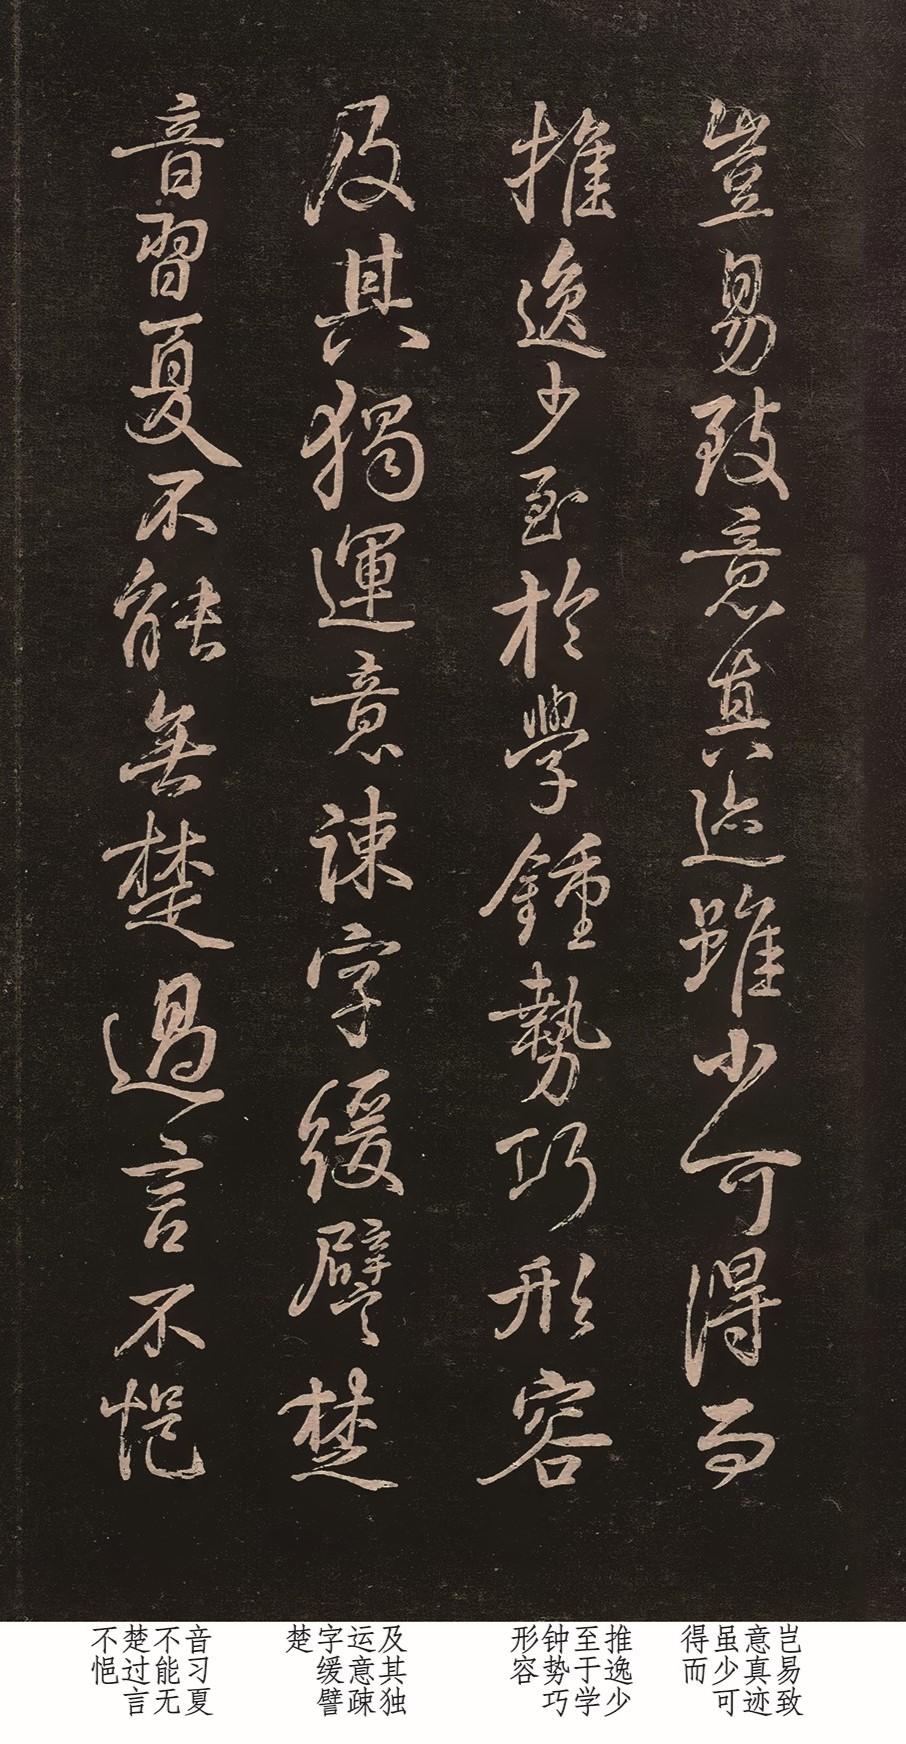 豈易致意真迹雖少可得而
推逸少至於學鍾勢巧形容
及其獨運意疎字緩譬楚
音習夏不能無楚過言不悒
岂易致
意真迹
虽少可
得而
推逸少
至于学
钟势巧
形容
及其独
运意疎
字缓譬
楚
音习夏
不能无
楚过言
不悒